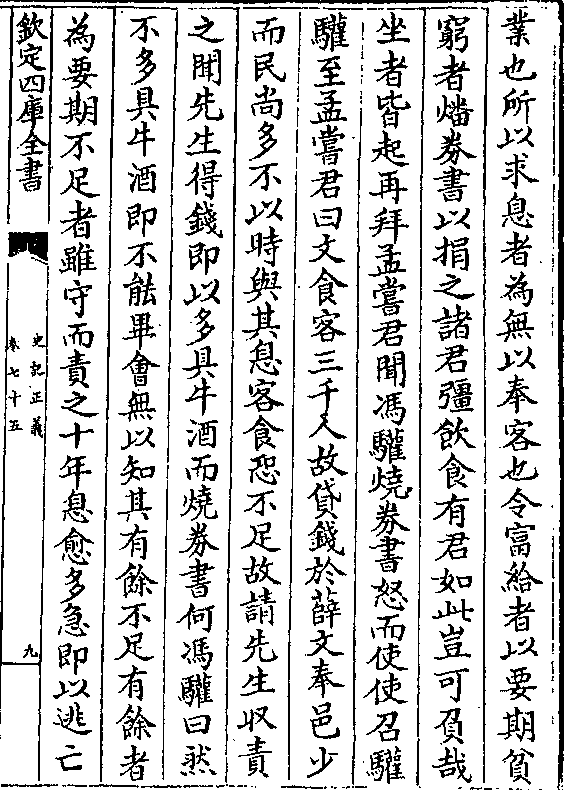 業也所以求息者為無以奉客也令富給者以要期貧
窮者燔券書以捐之諸君彊飲食有君如此豈可負哉
坐者皆起再拜孟嘗君聞馮驩燒券書怒而使使召驩
驩至孟嘗君曰文食客三千人故貸錢於薛文奉邑少
而民尚多不以時與其息客食恐不足故請先生収責
之聞先生得錢即以多具牛酒而燒券書何馮驩曰然
不多具牛酒即不能畢會無以知其有餘不足有餘者
為要期不足者雖守而責之十年息愈多急即以逃亡
欽定四庫全書
史記正義
卷七十五
九